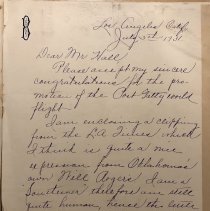 Los Angeles Calif
July 5th 1931
Dear Mr Hall
Please accept my sincere
congratulations for the pro-
motion of the Post Gatty world
flight.
I am enclosing a clipping
from the LA Times which
I think is quite a nice
expression from Oklahoma's
own Will Rogers I am a
therefore am still
quite human, hence the